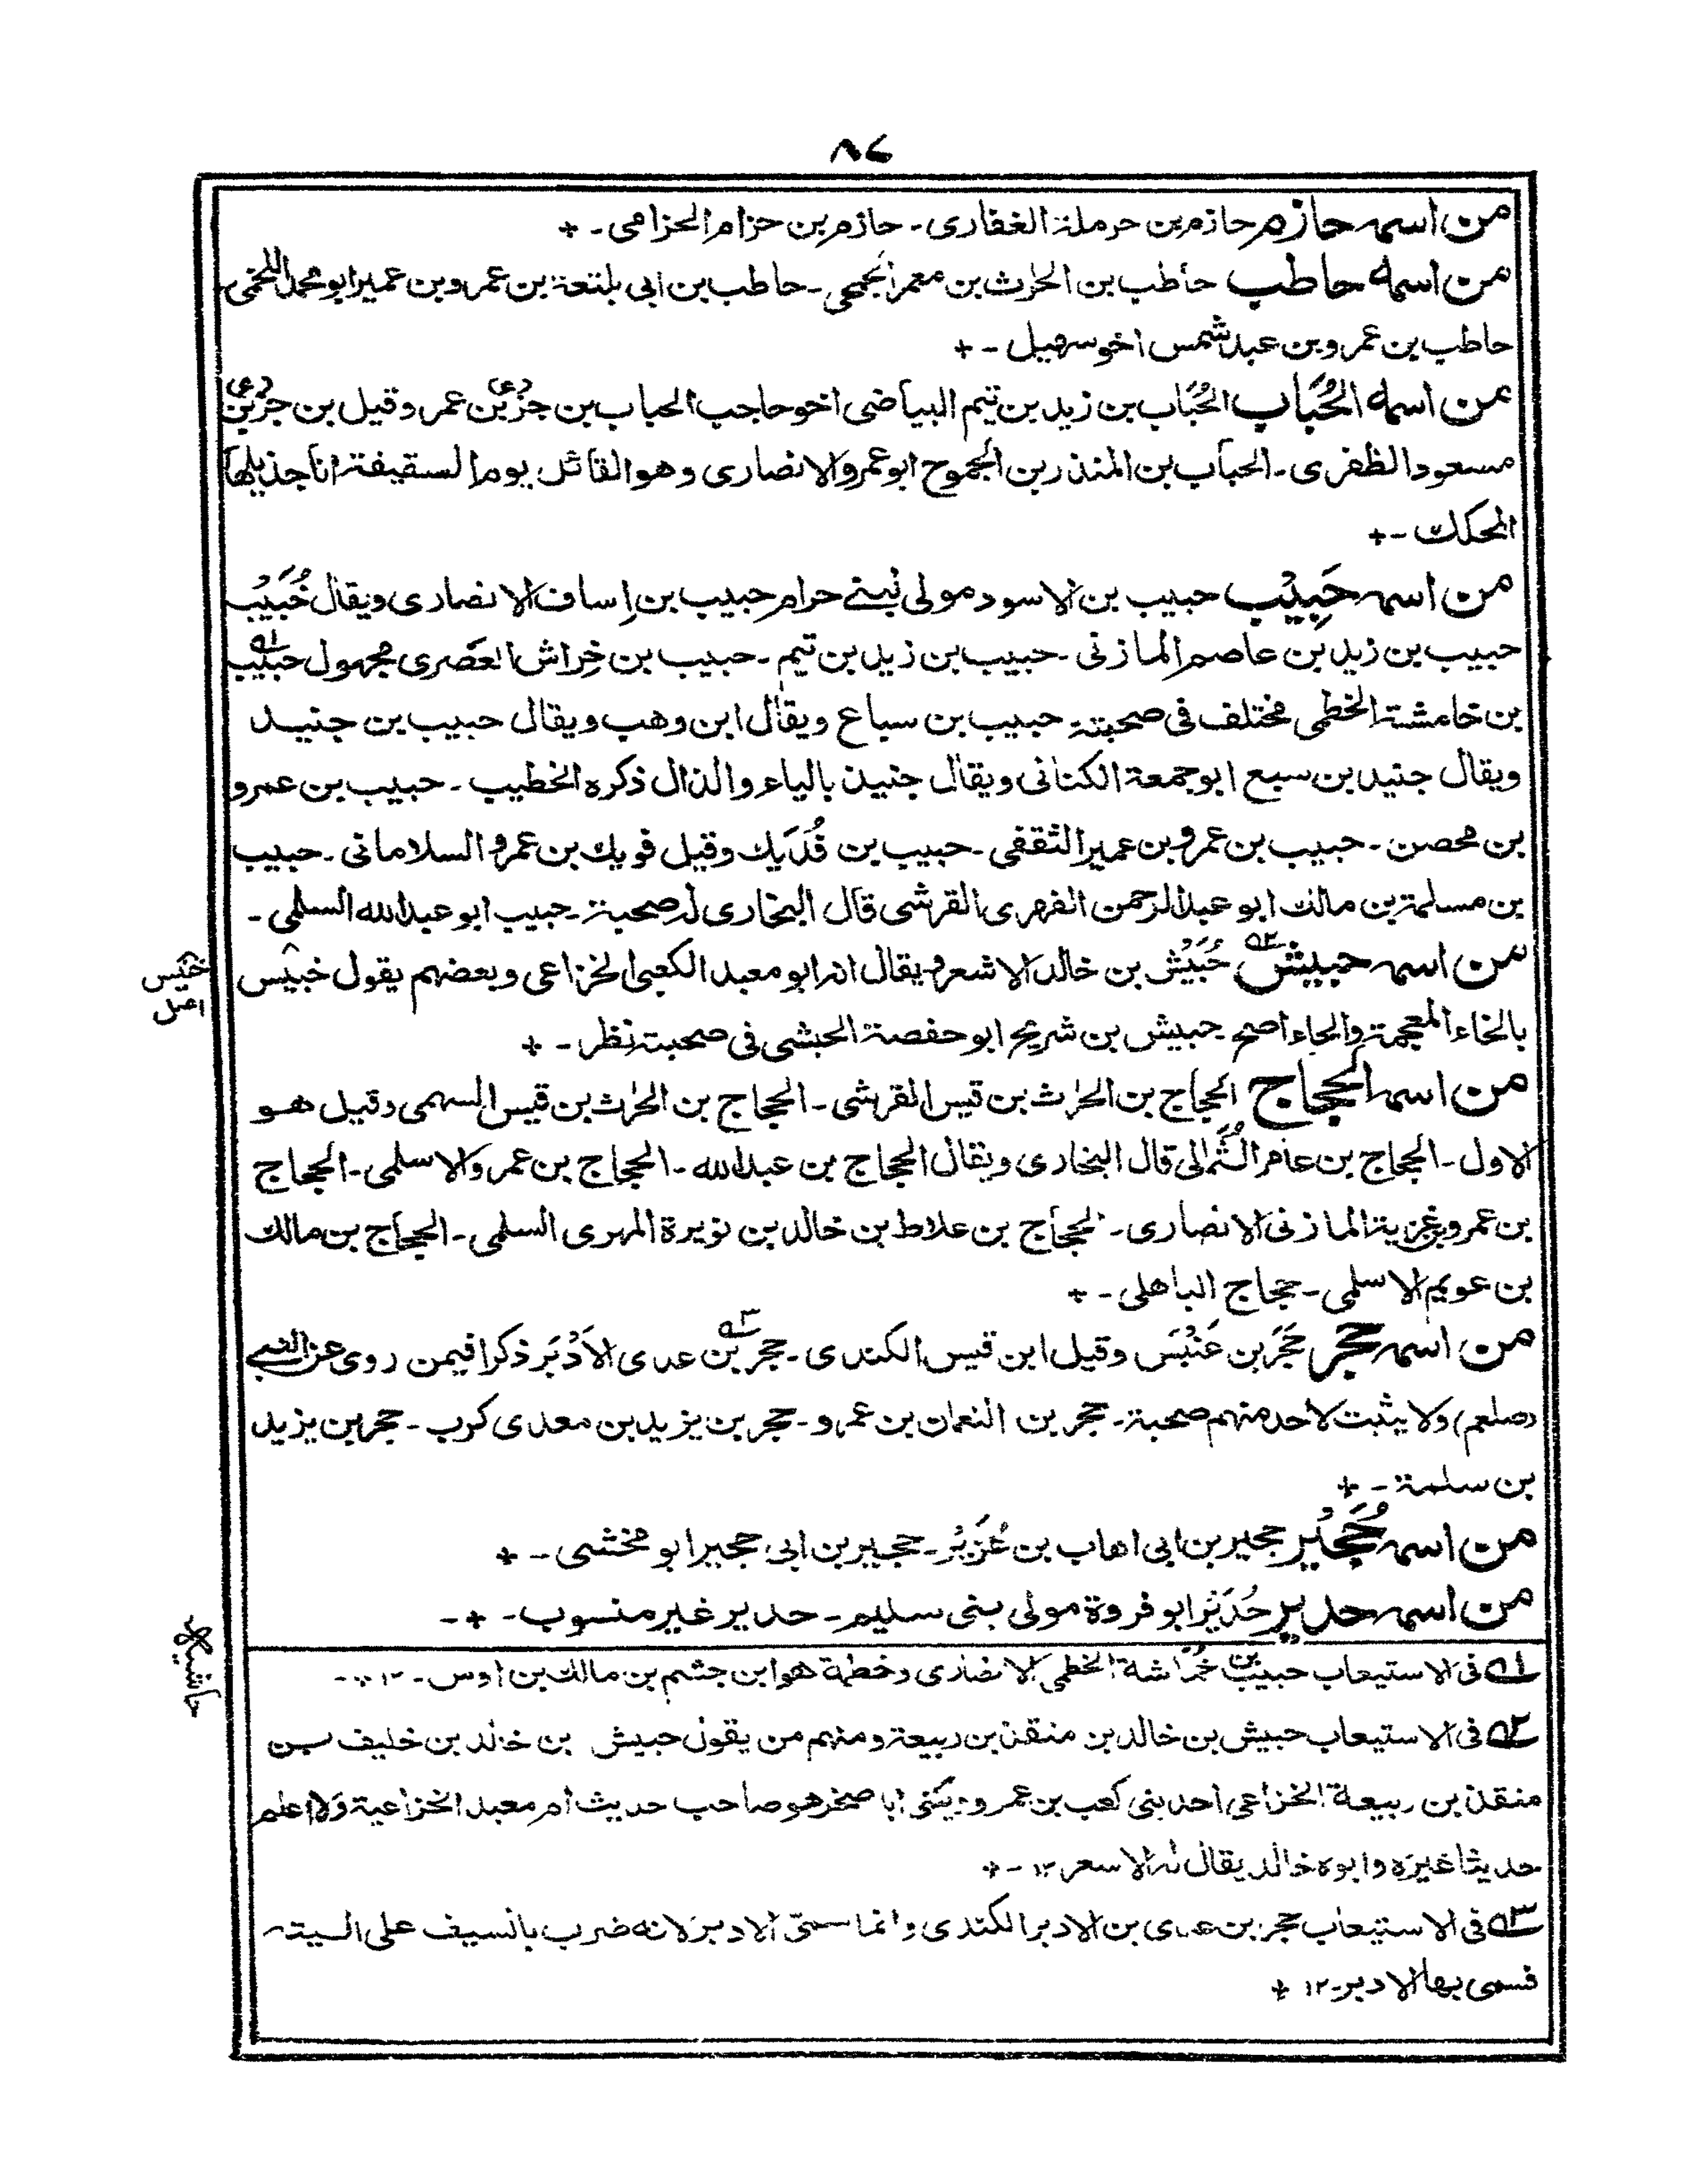 ٨٤
من اسمه حازم حازم بن حرملة الغفاری۔ حازم بن حزام الحزامی۔ +
من اسمه حاطب حاطب بن الحٰرث بن معمر الجمحی۔ حاطب بن ابی بلتعة بن عمرو بن عمیر ابو محمد اللخمی۔
حاطب بن عمرو بن عبد شمس اخو سهیل۔ +
من اسمه الحُبَاب الحُبَاب بن زید بن تیم البیاضی اخو حاجب الحباب بن جزء بن عمر وقیل بن جزء بن
مسعود الظفری۔ الحباب بن المنذر بن الجموح ابو عمرو الانصاری وهو القائل یوم السقیفة انا جذیلها
المحکك۔ +
من اسمه حَبِیْب حبیب بن الاسود مولی بنے حرام حبیب بن اِساف الانصاری ویقال خُبَیْب
حبیب بن زید بن عاصم المازنی۔ حبیب بن زید بن تیم۔ حبیب بن خِراش العَصَری مجهول حبیب ۱ه
بن خامشة الخطمی مختلف فی صحبته۔ حبیب بن سباع ویقال ابن وهب ویقال حبیب بن جنید
ویقال جنید بن سبع ابو جمعة الکنانی ویقال جنیذ بالیاء والذال ذکره الخطیب۔ حبیب بن عمرو
بن محصن۔ حبیب بن عمرو بن عمیر الثقفی۔ حبیب بن فُدَیك وقیل فویك بن عمرو السلامانی۔ حبیب
بن مسلمة بن مالك ابو عبد الرحمن الفهری القرشی قال البخاری له صحبة۔ حبیب ابو عبد الله السلمی۔
من اسمه حبیش ۲ه حُبَیْش بن خالد الاشعر ویقال انه ابو معبد الکعبی الخزاعی وبعضهم یقول خبیس
خنیس
اصل
بالخاء المعجمة والحاء اصح۔ حبیش بن شریح ابو حفصة الحبشی فی صحبته نظر۔ +
من اسمه الحجاج الحجاج بن الحٰرث بن قیس القرشی۔ الحجاج بن الحٰرث بن قیس السهمی وقیل هو
الاول۔ الحجاج بن عامر الثُّمالی قال البخاری ویقال الحجاج بن عبد الله۔ الحجاج بن عمرو الاسلمی۔ الحجاج
بن عمرو بن غزیة المازنی الانصاری۔ الحجاج بن علاط بن خالد بن نویرة المهری السلمی۔ الحجاج بن مالك
بن عویم الاسلمی۔ حجاج الباهلی۔ +
من اسمه حجر حَجَر بن عَنْبَس وقیل ابن قیس الکندی۔ حجر ۳ه بن عدی الاَدْبَر ذکرا فیمن روی عن النبے
(صلعم) ولا یثبت لاحد منهم صحبة۔ حجر بن النعمان بن عمرو۔ حجر بن یزید بن معدی کرب۔ حجر بن یزید
بن سلمة۔ +
من اسمه حُجَیْر حجیر بن ابی اهاب بن عُزَیْر۔ حجیر بن ابی حجیر ابو مخشی۔ +
من اسمه حدیر حُدَیْر ابو فروة مولی بنی سلیم۔ حدیر غیر منسوب۔ +۔
حاشیه
۱ه فی الاستیعاب حبیب بن خُمَاشة الخطمی الانصاری وخطمة هو ابن جشم بن مالك بن اوس۔ ۱۲
۲ه فی الاستیعاب حبیش بن خالد بن منقذ بن ربیعة ومنهم من یقول حبیش بن خالد بن خلیف بن
منقذ بن ربیعة الخزاعی احد بنی کعب بن عمرو ویکنی ابا صخر هو صاحب حدیث ام معبد الخزاعیة ولا اعلم
حدیثا غیره وابوه خالد یقال له الاسعر ۱۲۔ +
۳ه فی الاستیعاب حجر بن عدی بن الادبر الکندی وانما سمی الادبر لانه ضرب بالسیف علی الیته
فسمی بها الادبر۔ ۱۲ +